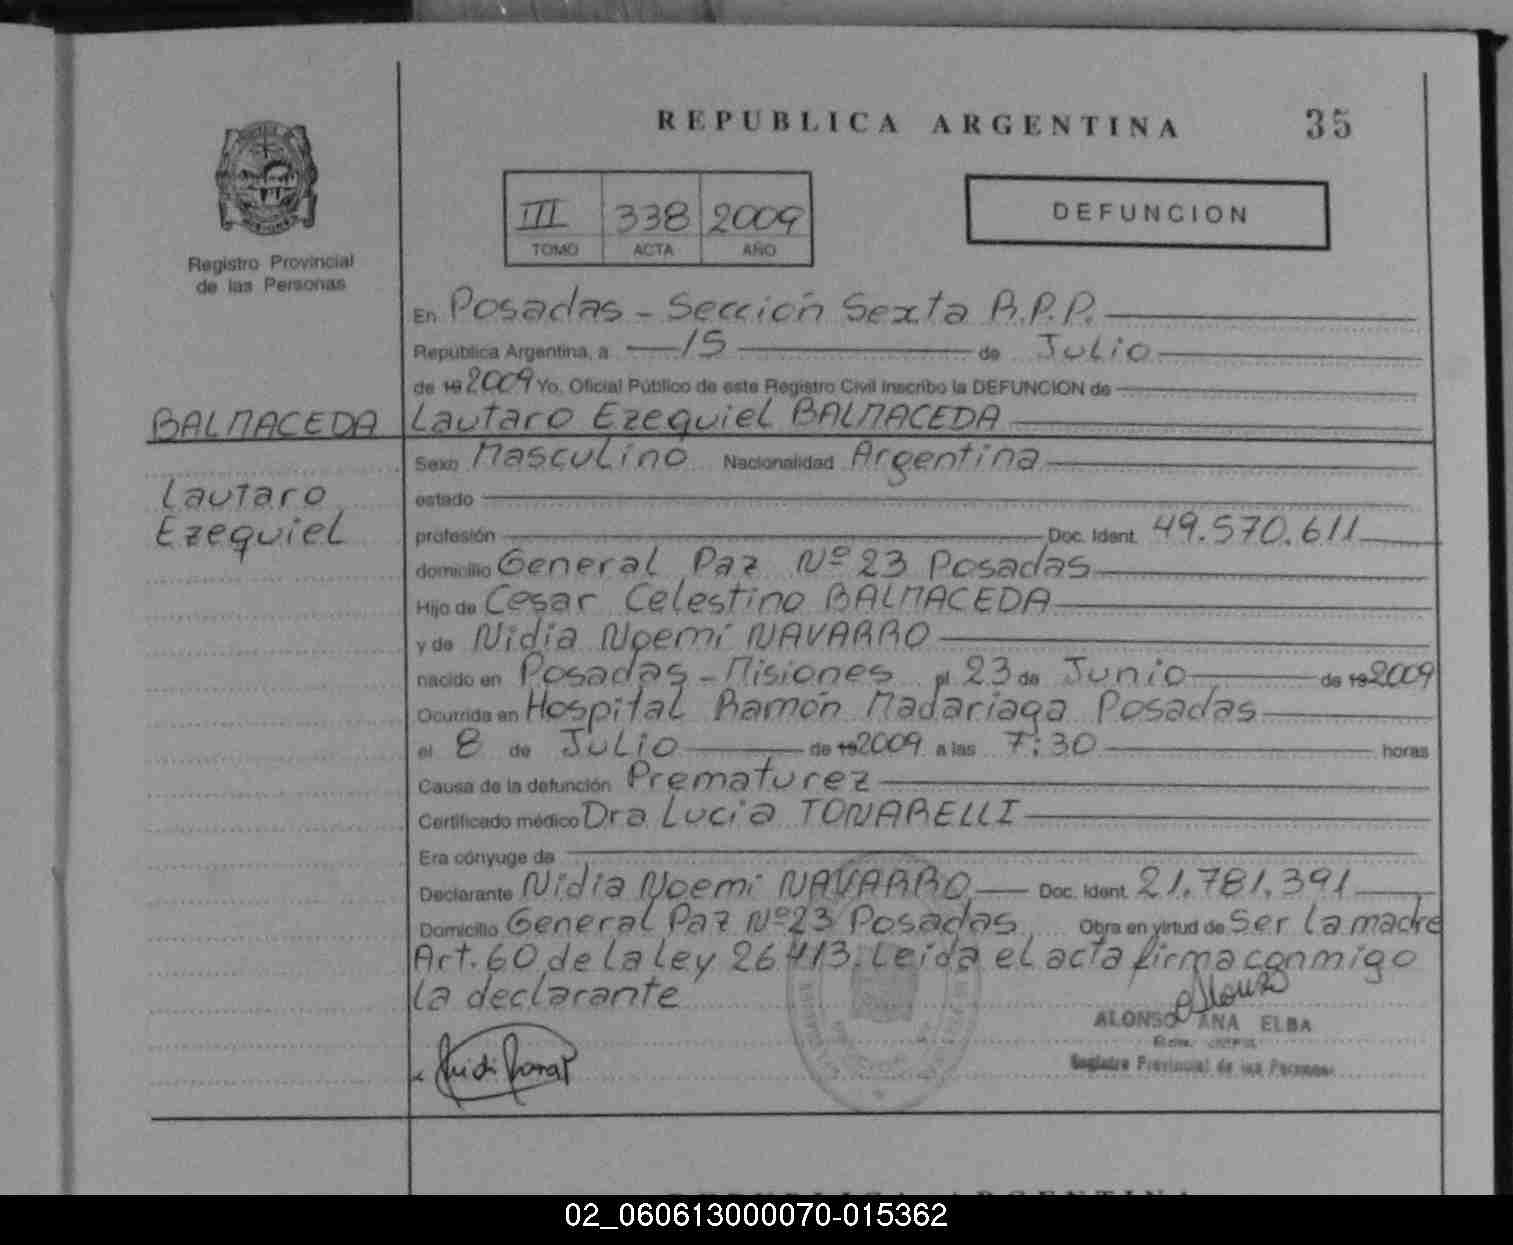 REPUBLICA ARGENTINA 35
III 338 2009
TOMO ACTA AÑO
DEFUNCION
Registro Provincial
de las Personas
En Posadas - Sección Sexta R.P.P.
República Argentina, a 15 de Julio
de 19 2009 Yo, Oficial Público de este Registro Civil inscribo la DEFUNCION de
BALMACEDA Lautaro Ezequiel BALMACEDA
Sexo Masculino Nacionalidad Argentina
Lautaro estado
Ezequiel profesión Doc. Ident. 49.570.611
domicilio General Paz Nº 23 Posadas
Hijo de Cesar Celestino BALMACEDA
y de Nidia Noemí NAVARRO
nacido en Posadas - Misiones el 23 de Junio de 19 2009
Ocurrida en Hospital Ramón Madariaga Posadas
el 8 de Julio de 19 2009 a las 7:30 horas
Causa de la defunción Prematurez
Certificado médico Dra Lucia TONARELLI
Era cónyuge de
Declarante Nidia Noemi NAVARRO Doc. Ident. 21.781.391
Domicilio General Paz Nº 23 Posadas Obra en virtud de Ser la madre
Art. 60 de la ley 26413. Leída el acta firma conmigo
la declarante
ALONSO ANA ELBA
Registro Provincial de las Personas
REPUBLICA ARGENTINA
02_060613000070-015362